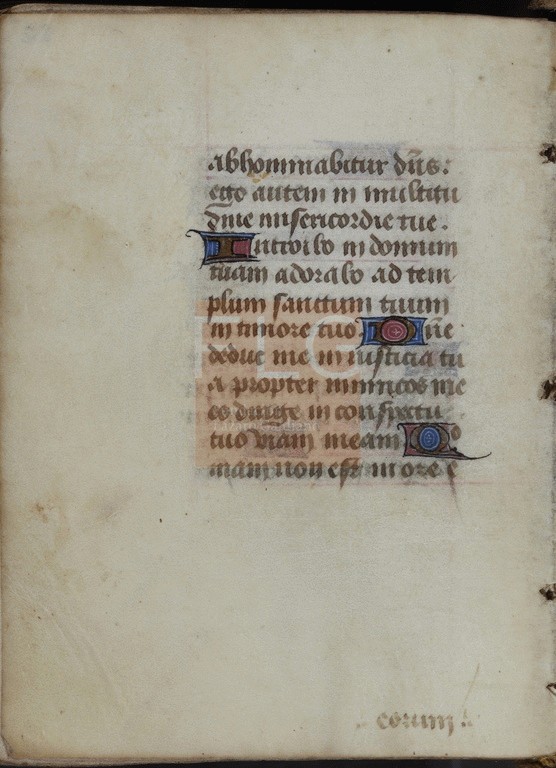 abhominabitur dn̄s:
ego autem in multitu
dine misericordie tue.
Introibo in domum
tuam adorabo ad tem
plum sanctum tuum
in timore tuo Dn̄e
deduc me in iusticia tu
a propter inimicos me
os dirige in conspectu
tuo viam meam Qo
niam non est in ore e
eorum: